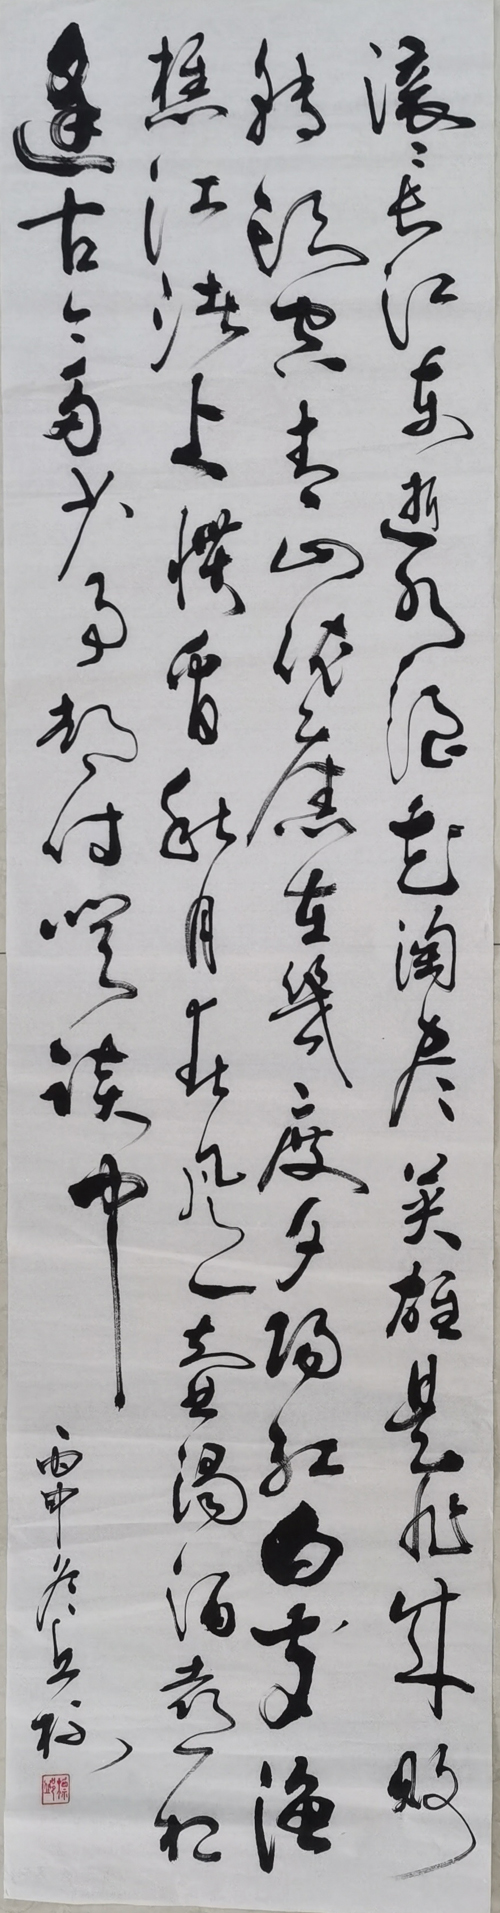 滚滚长江東逝水浪花淘尽英雄是非成败
转頭空青山依舊在幾度夕陽红白发渔
樵江渚上慣看秋月春風一壶濁酒喜相
逢古今多少事都付笑談中
丙申冬